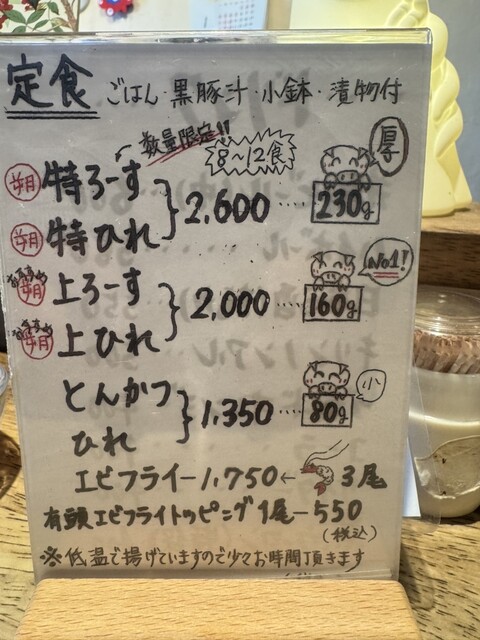 定食 ごはん・黒豚汁・小鉢・漬物付
数量限定!!
8〜12食
特ろーす
特ひれ
2,600 …… 230g
厚
おすすめ 上ろーす
おすすめ 上ひれ
2,000 …… 160g
No.1!
とんかつ
ひれ
1,350 …… 80g
小
エビフライー1,750← 3尾
有頭エビフライトッピング1尾ー550
(税込)
※低温で揚げていますので少々お時間頂きます